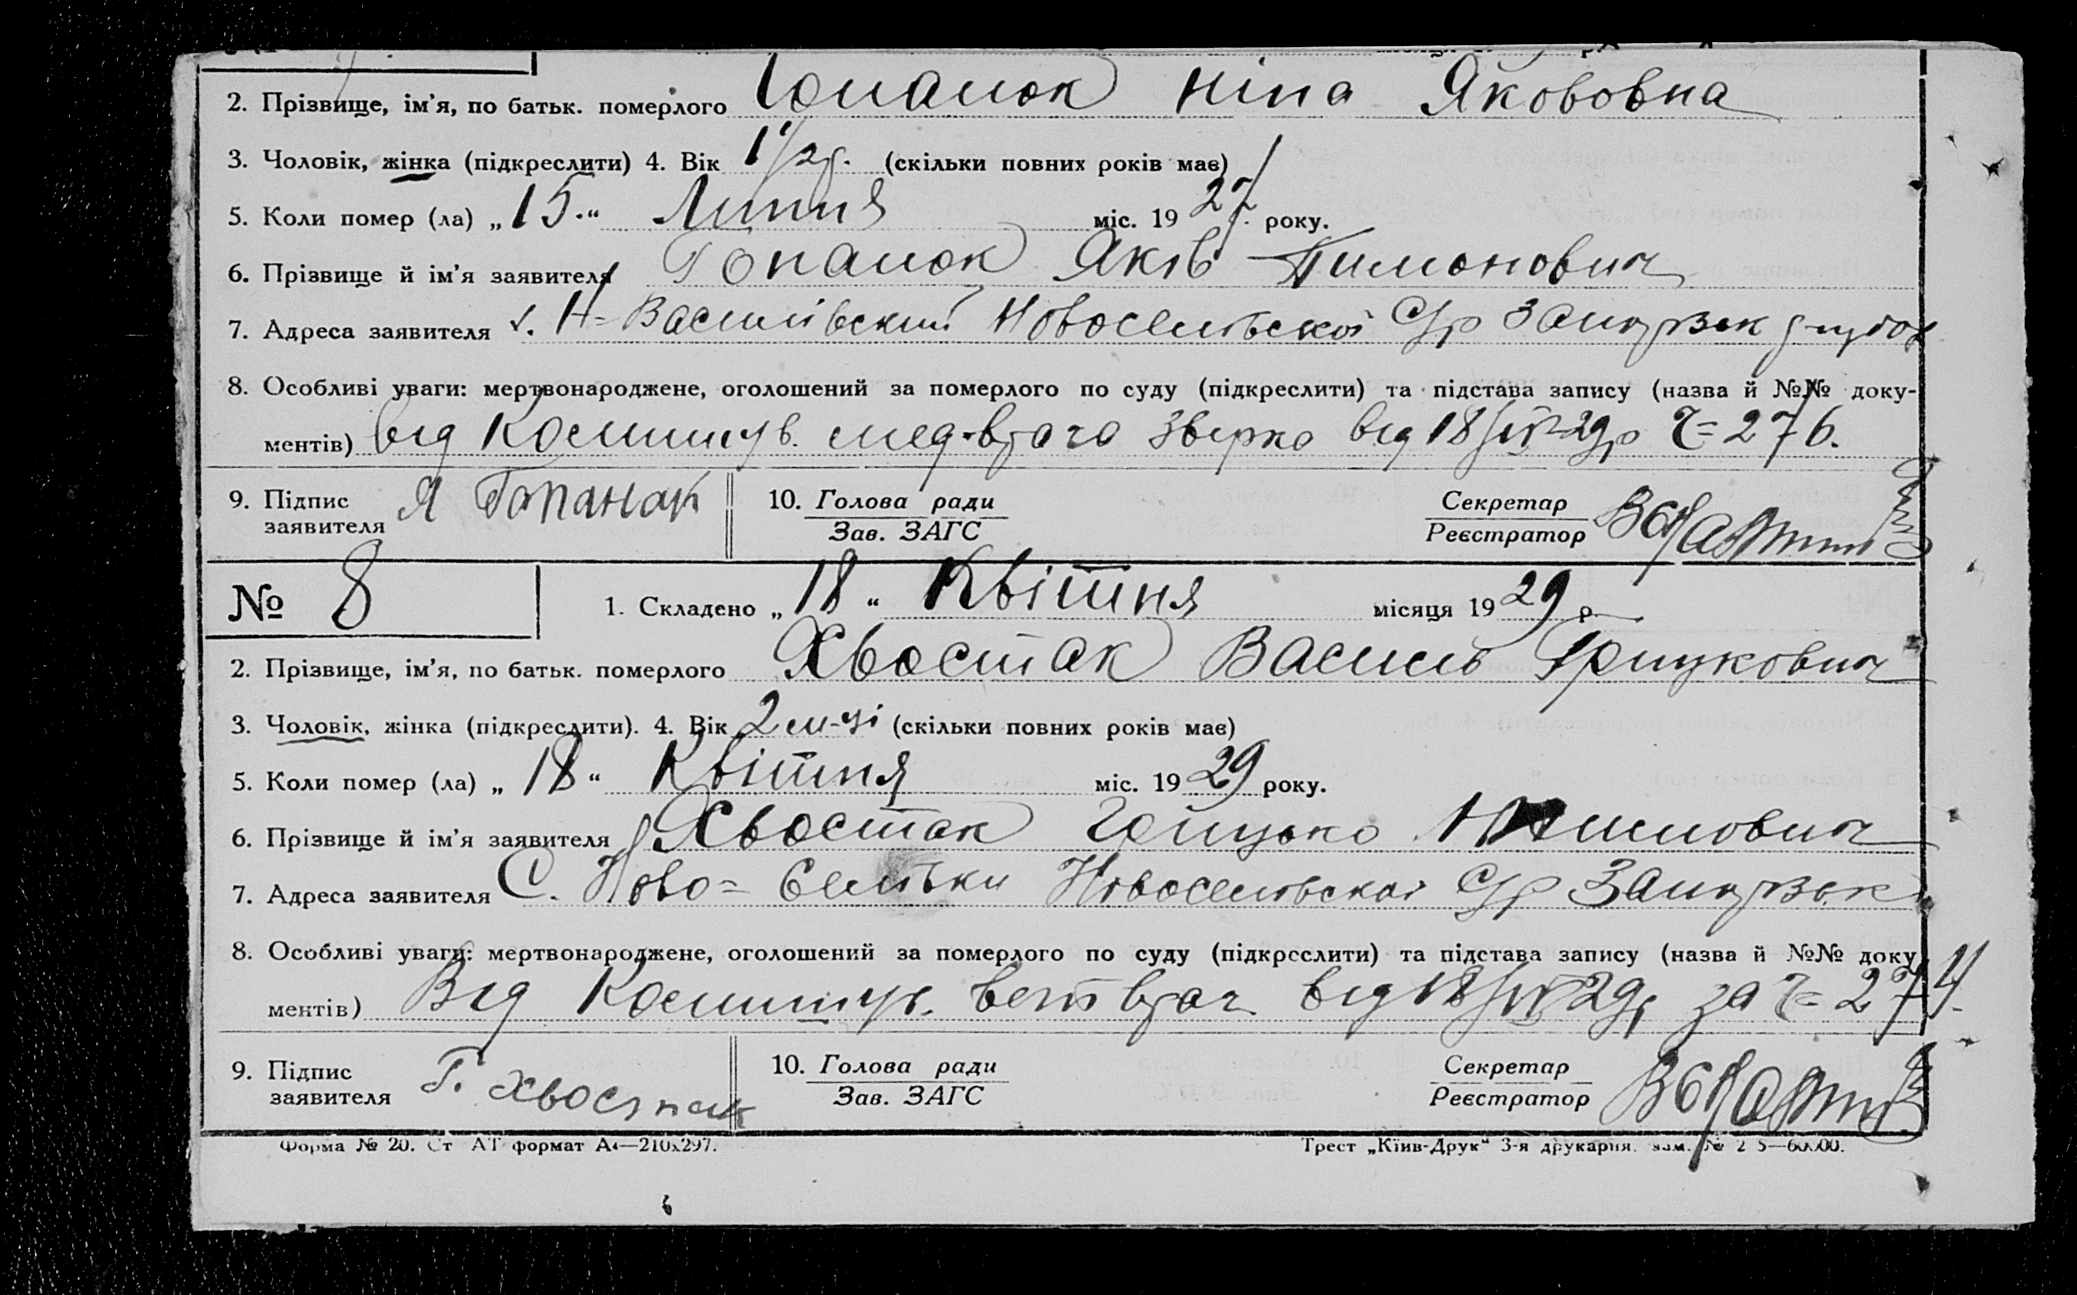 2. Прізвище, ім'я, по батьк. померлого Гопанюк Ніна Якововна
3. Чоловік, жінка (підкреслити) 4. Вік 1 1/2 г. (скільки повних років має)
5. Коли помер (ла) „ 15 “ Липня міс. 19 27 року.
6. Прізвище й ім'я заявителя Гопанюк Яків Тимонович
7. Адреса заявителя х. Н-Василівський Новосельської С/р
8. Особливі уваги: мертвонароджене, оголошений за померлого по суду (підкреслити) та підстава запису (назва й №№ доку-
ментів) від мед-врача від 18/IV-29 р Ч= 276.
9. Підпис заявителя Я Гапанюк 10. Голова ради Зав. ЗАГС Секретар Реєстратор
№ 8 1. Складено „ 18 “ Квітня місяця 19 29 р
2. Прізвище, ім'я, по батьк. померлого Хвостак Василь Грицкович
3. Чоловік, жінка (підкреслити). 4. Вік 2 м-ці (скільки повних років має)
5. Коли помер (ла) „ 18 “ Квітня міс. 19 29 року.
6. Прізвище й ім'я заявителя Хвостак Грицько
7. Адреса заявителя С. Ново=Селівки Новосельської С/р
8. Особливі уваги: мертвонароджене, оголошений за померлого по суду (підкреслити) та підстава запису (назва й №№ доку
ментів) Від врач від 18/IV 29 р за Ч= 274.
9. Підпис заявителя Г. Хвостак 10. Голова ради Зав. ЗАГС Секретар Реєстратор
Форма № 20. Ст АТ формат А4—210х297. Трест „Київ-Друк“ 3-я друкарня. зам. №